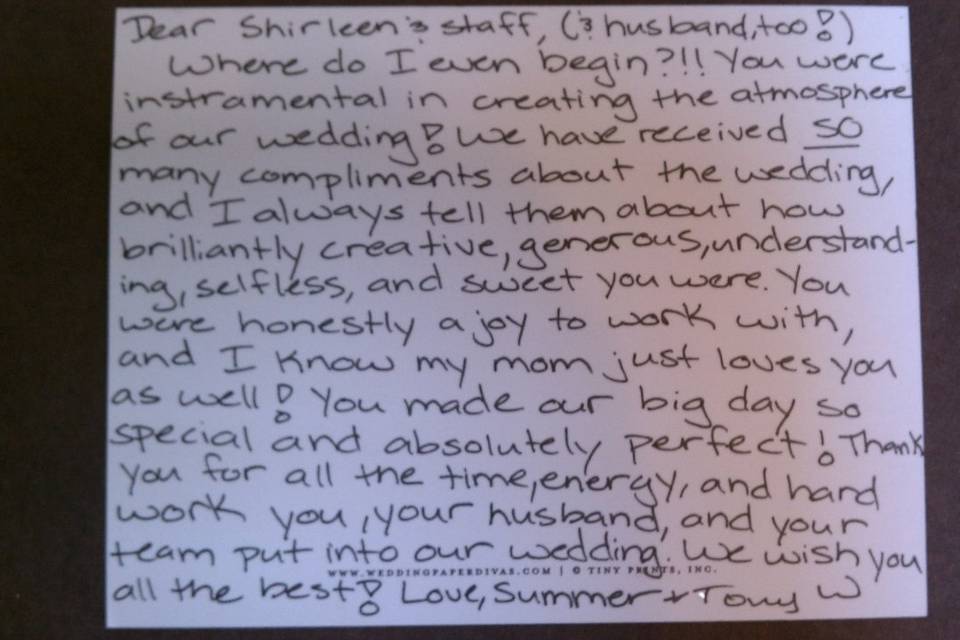 Dear Shirleen & staff, (& husband, too!)
Where do I even begin?!! You were
instramental in creating the atmosphere
of our wedding! We have received SO
many compliments about the wedding,
and I always tell them about how
brilliantly creative, generous, understand-
ing, selfless, and sweet you were. You
were honestly a joy to work with,
and I know my mom just loves you
as well! You made our big day so
special and absolutely perfect! Thank
you for all the time, energy, and hard
work you, your husband, and your
team put into our wedding. We wish you
WWW.WEDDINGPAPERDIVAS.COM | © TINY PRINTS, INC.
all the best! Love, Summer + Tony W